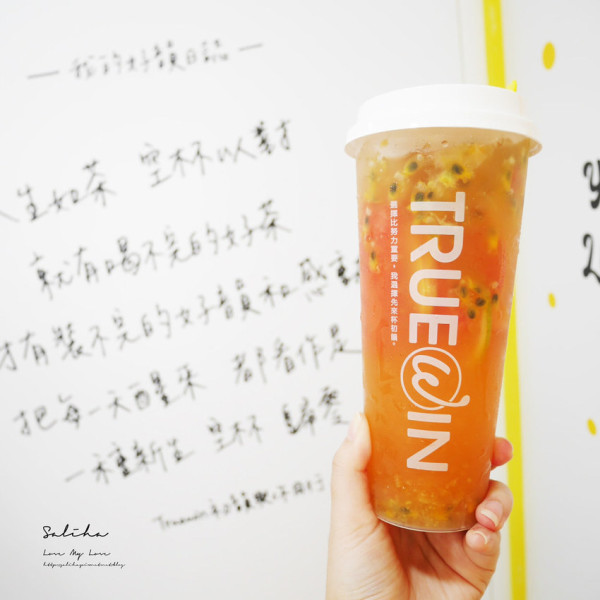 — 我的好韻日誌 —
人生如茶 空杯以對才
就有喝不完的好茶
才有裝不完的好韻和感
把每一天醒來 都看作是
一種新生 空杯 歸零
TRUEWIN
選擇比努力重要,我選擇先來杯初韻。
Saliha
Love My Love